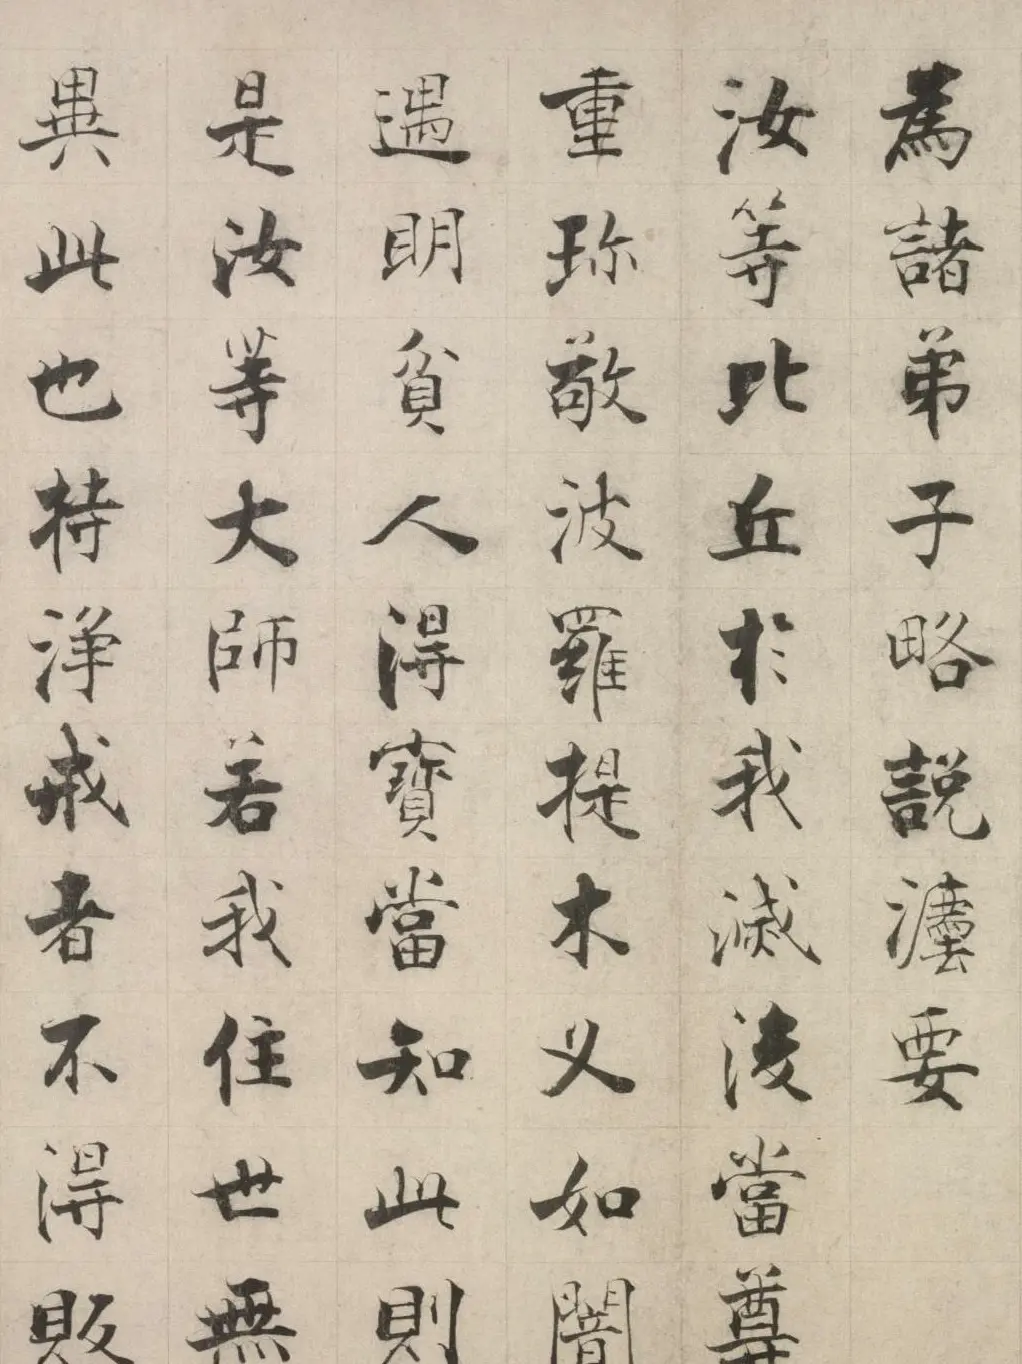 為諸弟子略說灋要
汝等比丘於我滅後當尊
重珎敬波羅提木叉如闇
遇明貧人得寶當知此則
是汝等大師若我住世無
異此也持淨戒者不得販